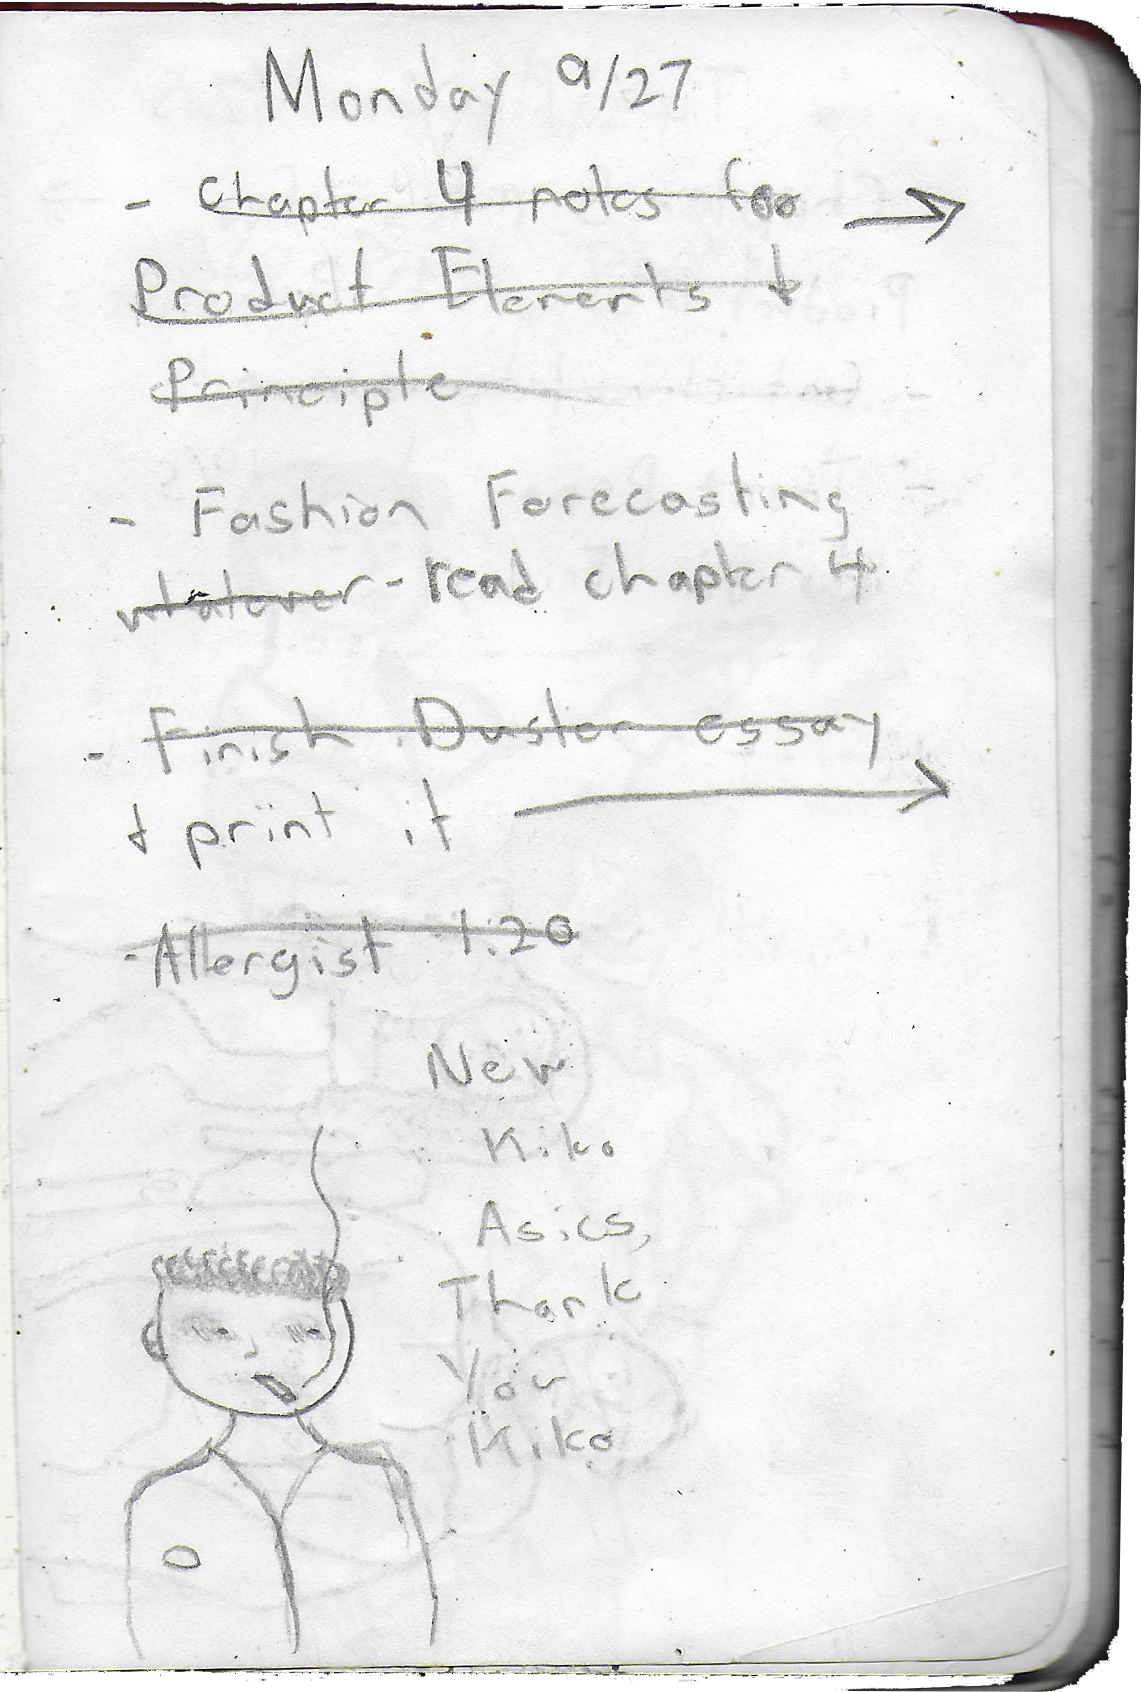 Monday 9/27
- Chapter 4 notes for
Product Elements &
Principle
- Fashion Forecasting
whatever - read chapter 4
- Finish Duster essay
& print it
- Allergist 1:20
New
Kiko
Asics,
Thank
You
Kiko